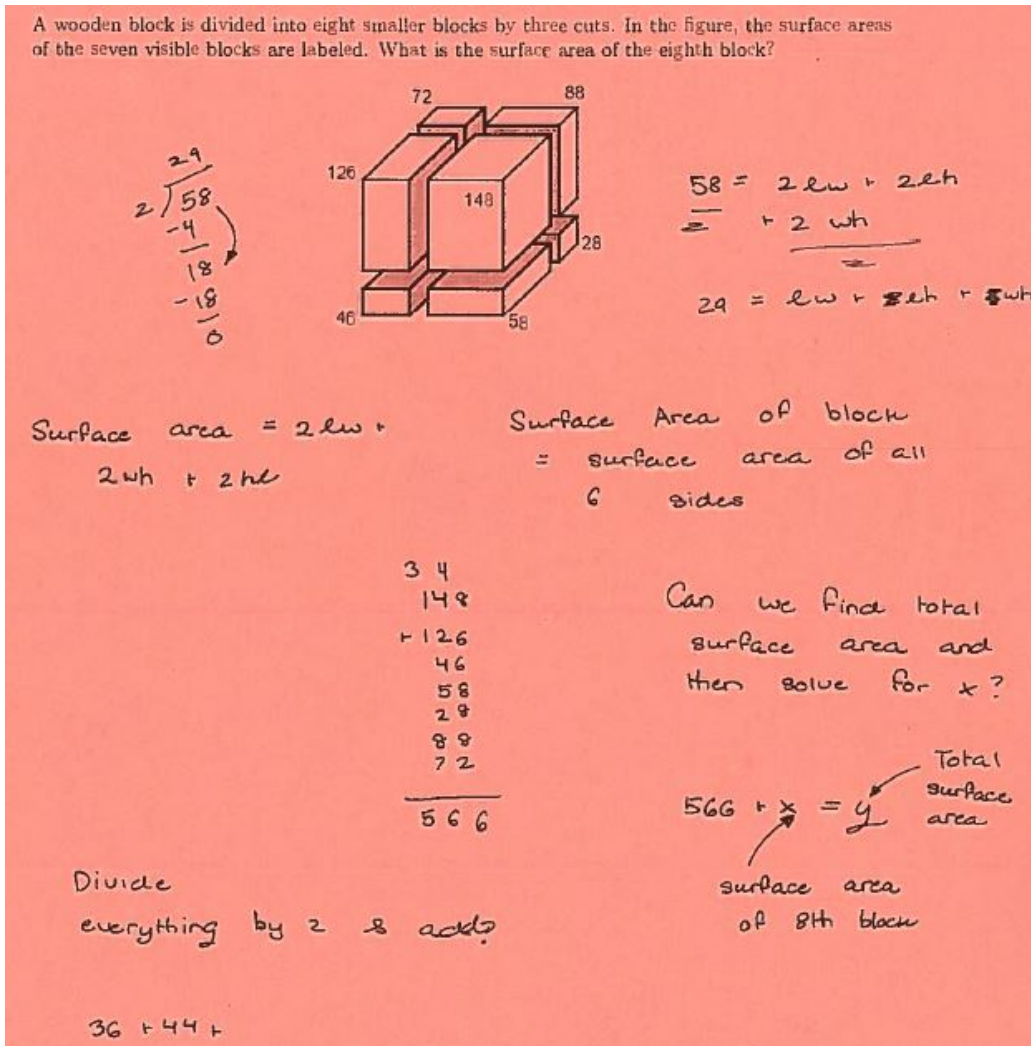 A wooden block is divided into eight smaller blocks by three cuts. In the figure, the surface areas
of the seven visible blocks are labeled. What is the surface area of the eighth block?
72
88
126
148
28
46
58
29
2 ) 58
-4
18
-18
0
58 = 2lw + 2lh
+ 2 wh
29 = lw + lh + wh
Surface area = 2lw +
2wh + 2hl
Surface Area of block
= surface area of all
6 sides
3 4
148
+126
46
58
28
88
72
566
Can we find total
surface area and
then solve for x?
566 + x = y
Total
surface
area
surface area
of 8th block
Divide
everything by 2 & add?
36 + 44 +